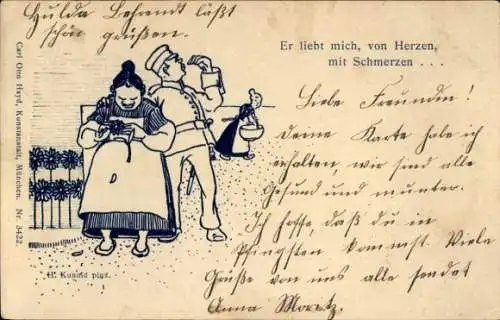 Hulda Behrendt läßt
schön grüßen.
Er liebt mich, von Herzen,
mit Schmerzen . . .
Liebe Freunden!
Deine Karte habe ich
erhalten, wir sind alle
Gesund und munter.
Ich hoffe, daß du in
Pfingsten kommst. Viele
Grüße von uns alle sendet
Anna Moretz.
Carl Otto Hayd, Kunstanstalt, München. Nr. 3422.
H. pinx.